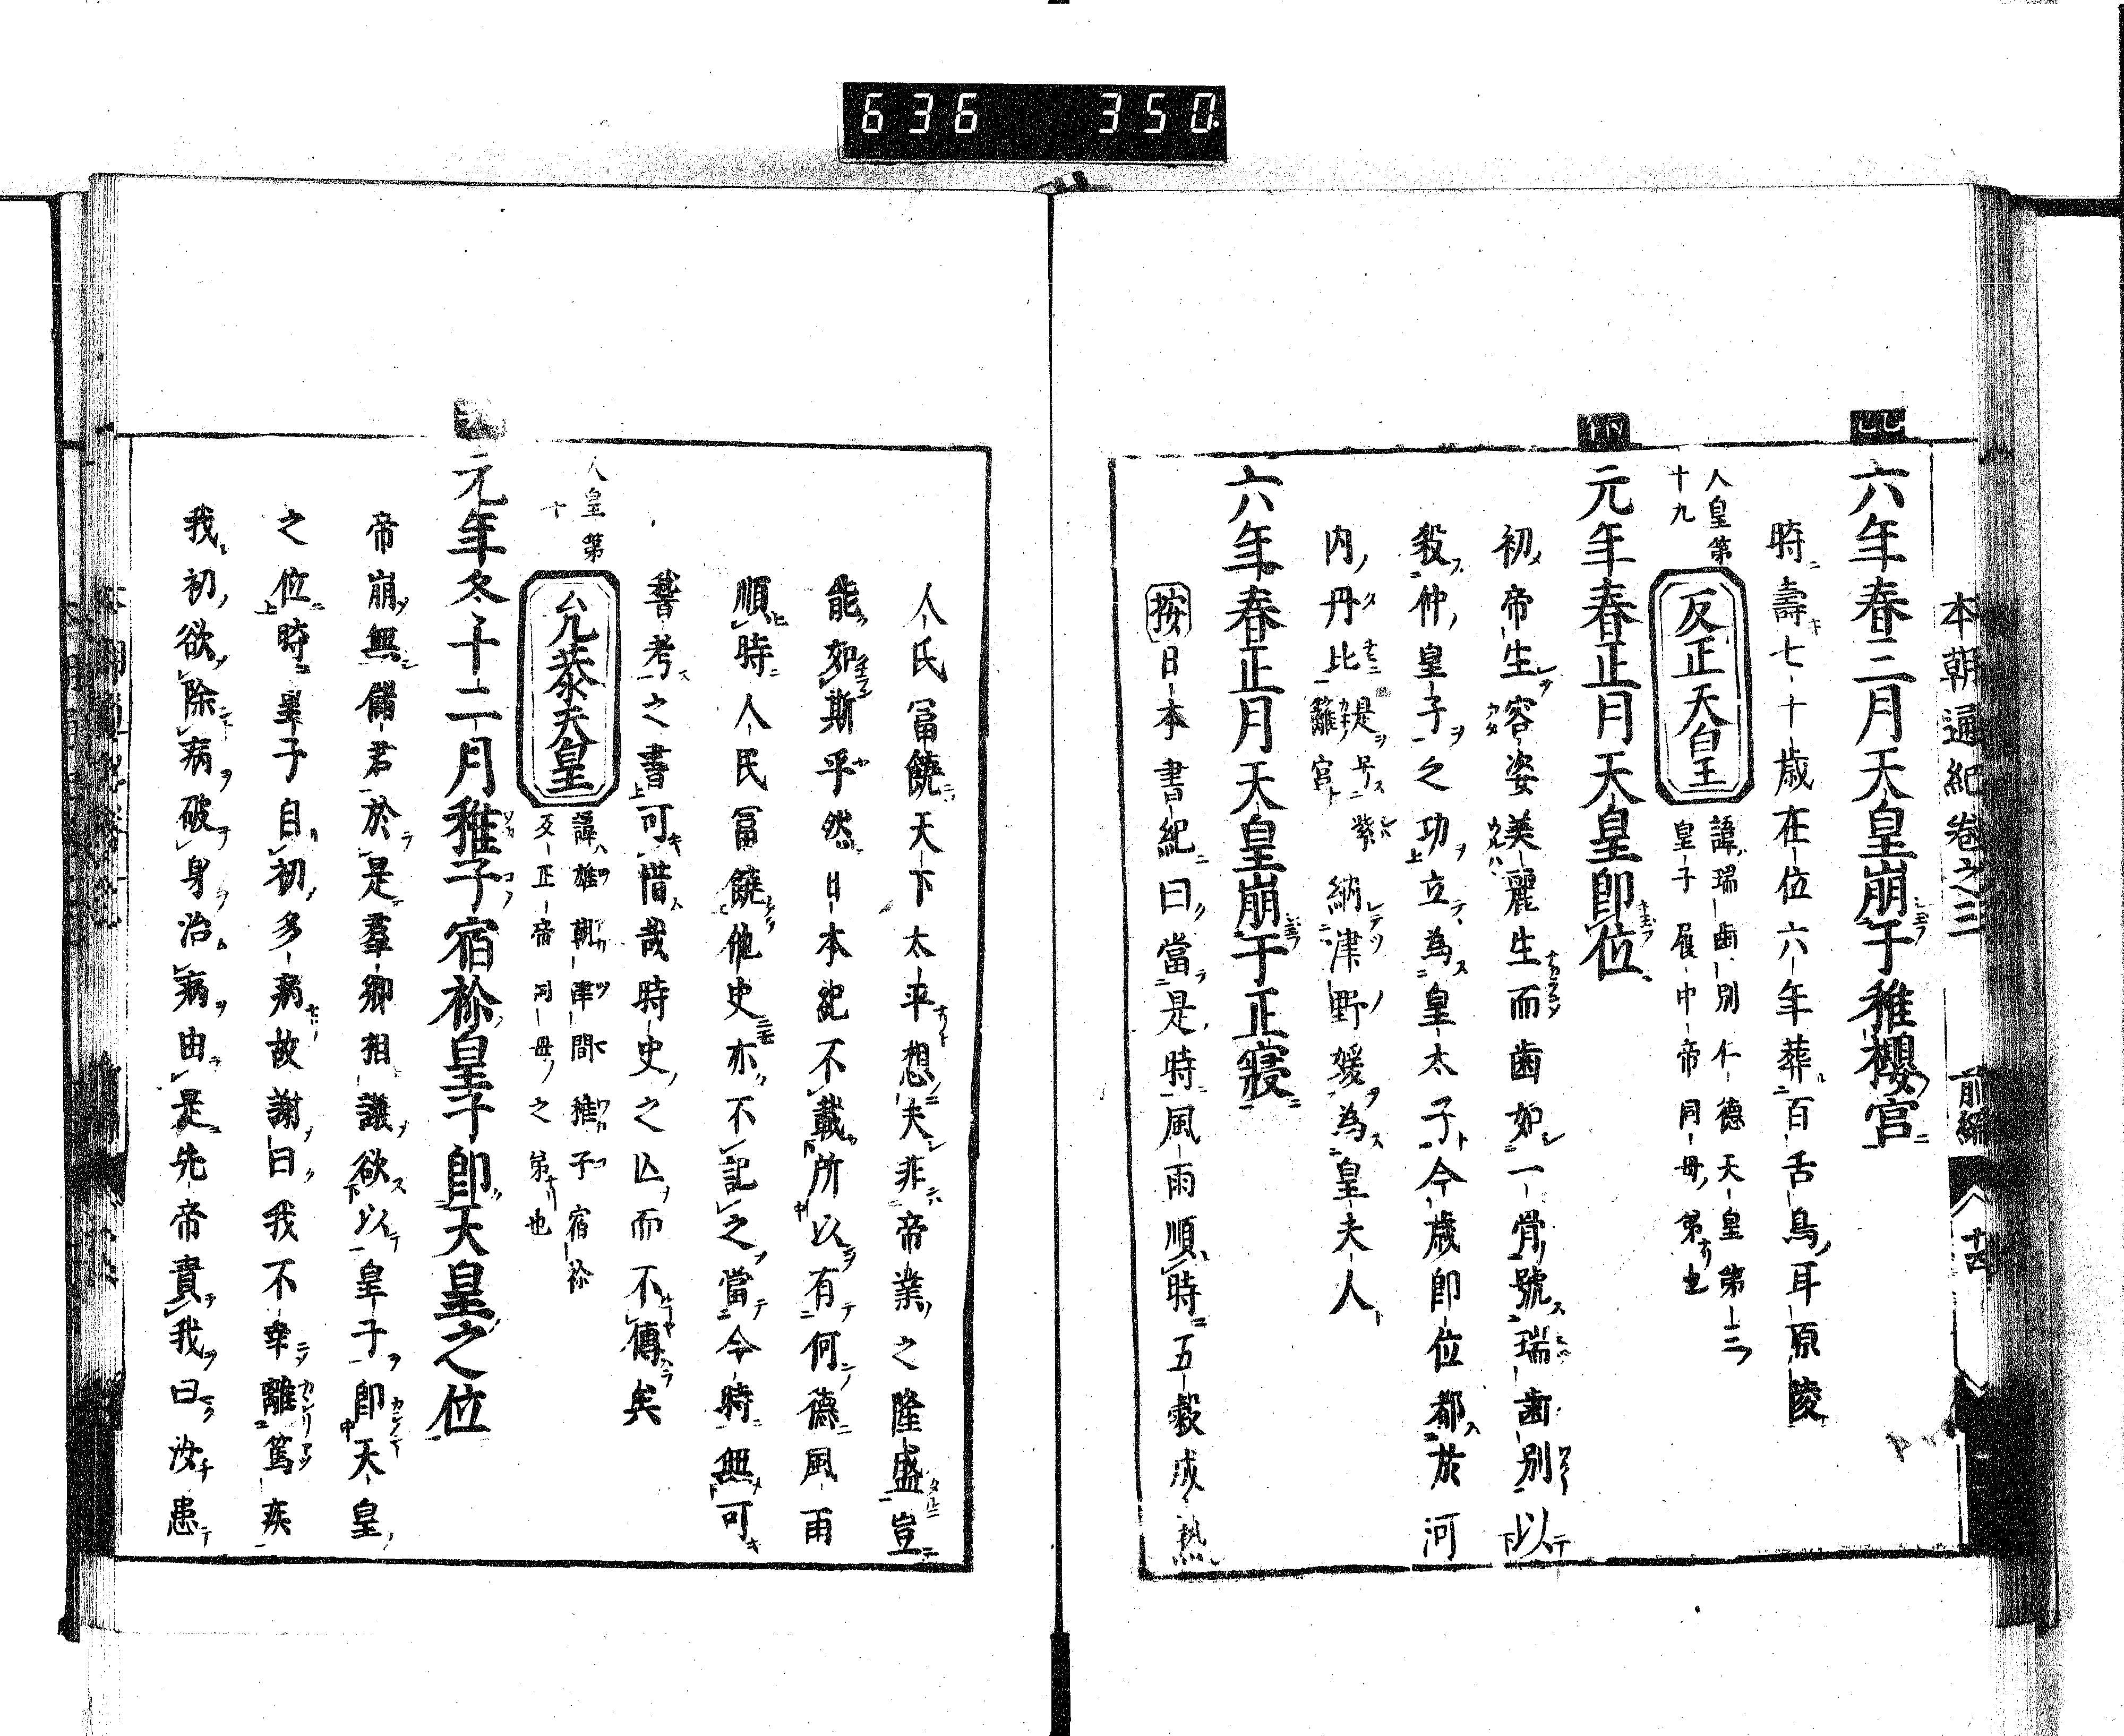 636 350
本朝通紀卷之三 前編 十四
六年春三月天皇崩于稚櫻宮
時壽七十歲在位六年葬百舌鳥耳原陵
人皇第十九
反正天皇
諱瑞齒別仁德天皇第三
皇子履中帝同母弟也
元年春正月天皇卽位
初帝生容姿美麗生而齒如一骨號瑞齒別以
殺仲皇子之功立為皇太子今歲卽位都於河
內丹比是号紫籬宮納津野媛為皇夫人
六年春正月天皇崩于正寢
按日本書紀曰當是時風雨順時五穀成熟
人民冨饒天下太平想夫非帝業之隆盛豈
能如斯乎然日本紀不載所以有何德風雨
順時人民冨饒他史亦不記之當今時無可
稽考之書可惜哉時史之亡而不傳矣
人皇第二十
允恭天皇
諱雄朝津間稚子宿祢
反正帝同母之弟也
元年冬十二月稚子宿祢皇子卽天皇之位
帝崩無儲君於是羣卿相議欲以皇子卽天皇
之位時皇子自初多病故謝曰我不幸離篤疾
我初欲除病破身治病由是先帝責我曰汝患